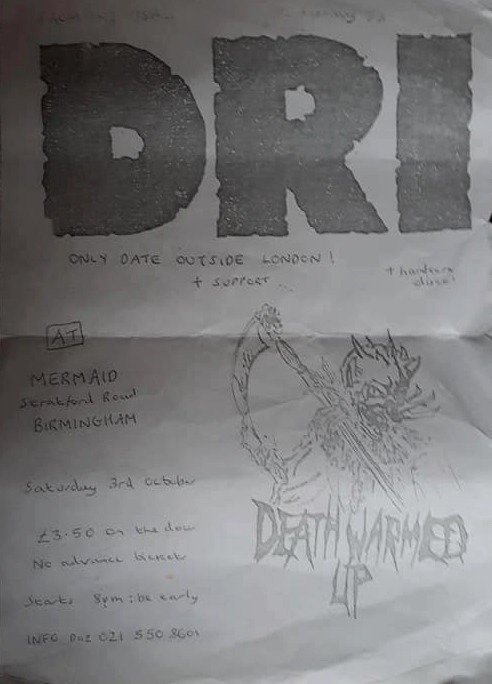 DRI
ONLY DATE OUTSIDE LONDON!
+ SUPPORT...
+ hardcore
AT
MERMAID
Stratford Road
BIRMINGHAM
Saturday 3rd October
£3.50 on the door
No advance tickets
Starts 8pm : be early
INFO Daz 021 550 8601
DEATH WARMED
UP